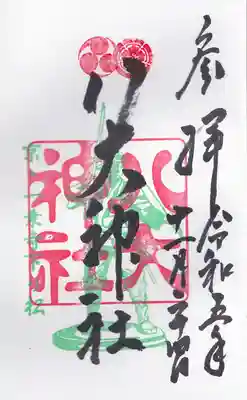 参拝
令和五年
十二月二十四日
八大神社
八大
神社